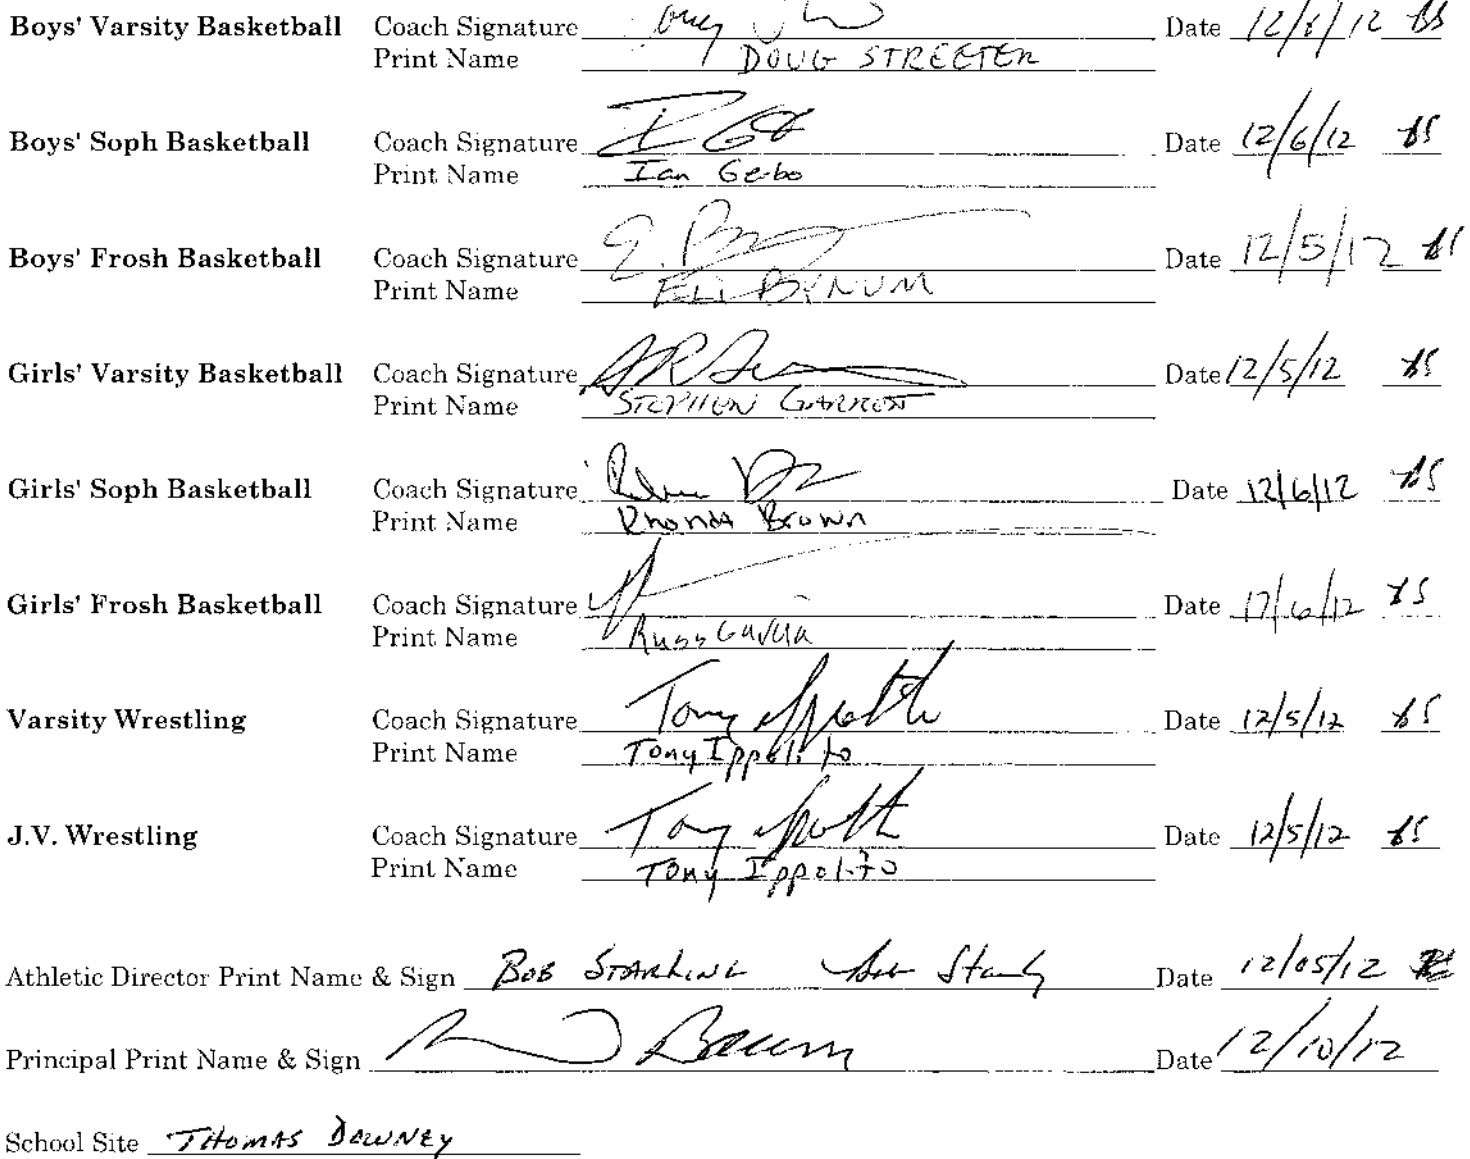 Boys' Varsity Basketball Coach Signature Date 12/8/12 BS
Print Name DOUG STREETER
Boys' Soph Basketball Coach Signature Date 12/6/12 BS
Print Name Ian Gerbo
Boys' Frosh Basketball Coach Signature E. Date 12/5/12 BS
Print Name ELI BYNUM
Girls' Varsity Basketball Coach Signature Date 12/5/12 BS
Print Name STEPHEN GARRETT
Girls' Soph Basketball Coach Signature Date 12/6/12 BS
Print Name Rhonda Brown
Girls' Frosh Basketball Coach Signature Date 12/6/12 BS
Print Name Russ Garcia
Varsity Wrestling Coach Signature Tony Ippolito Date 12/5/12 BS
Print Name Tony Ippolito
J.V. Wrestling Coach Signature Tony Ippolito Date 12/5/12 BS
Print Name Tony Ippolito
Athletic Director Print Name & Sign BOB STARLING Date 12/05/12
Principal Print Name & Sign Date 12/10/12
School Site THOMAS DOWNEY